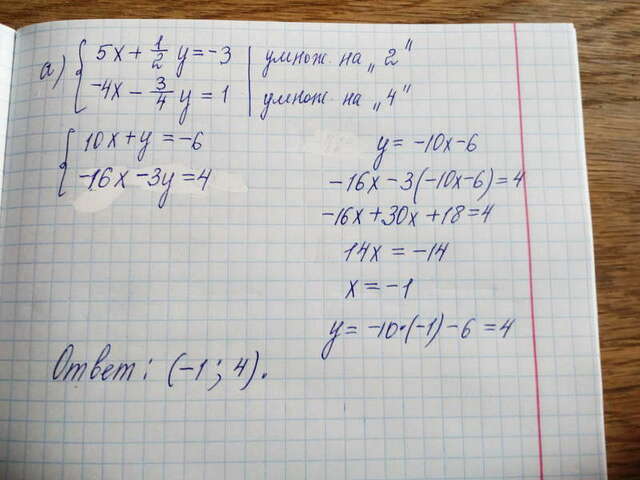 а) { 5x + 1/2 y = -3 | умнож. на „2"
-4x - 3/4 y = 1 | умнож. на „4"
{ 10x + y = -6
-16x - 3y = 4
y = -10x - 6
-16x - 3(-10x - 6) = 4
-16x + 30x + 18 = 4
14x = -14
x = -1
y = -10·(-1) - 6 = 4
Ответ: (-1; 4).